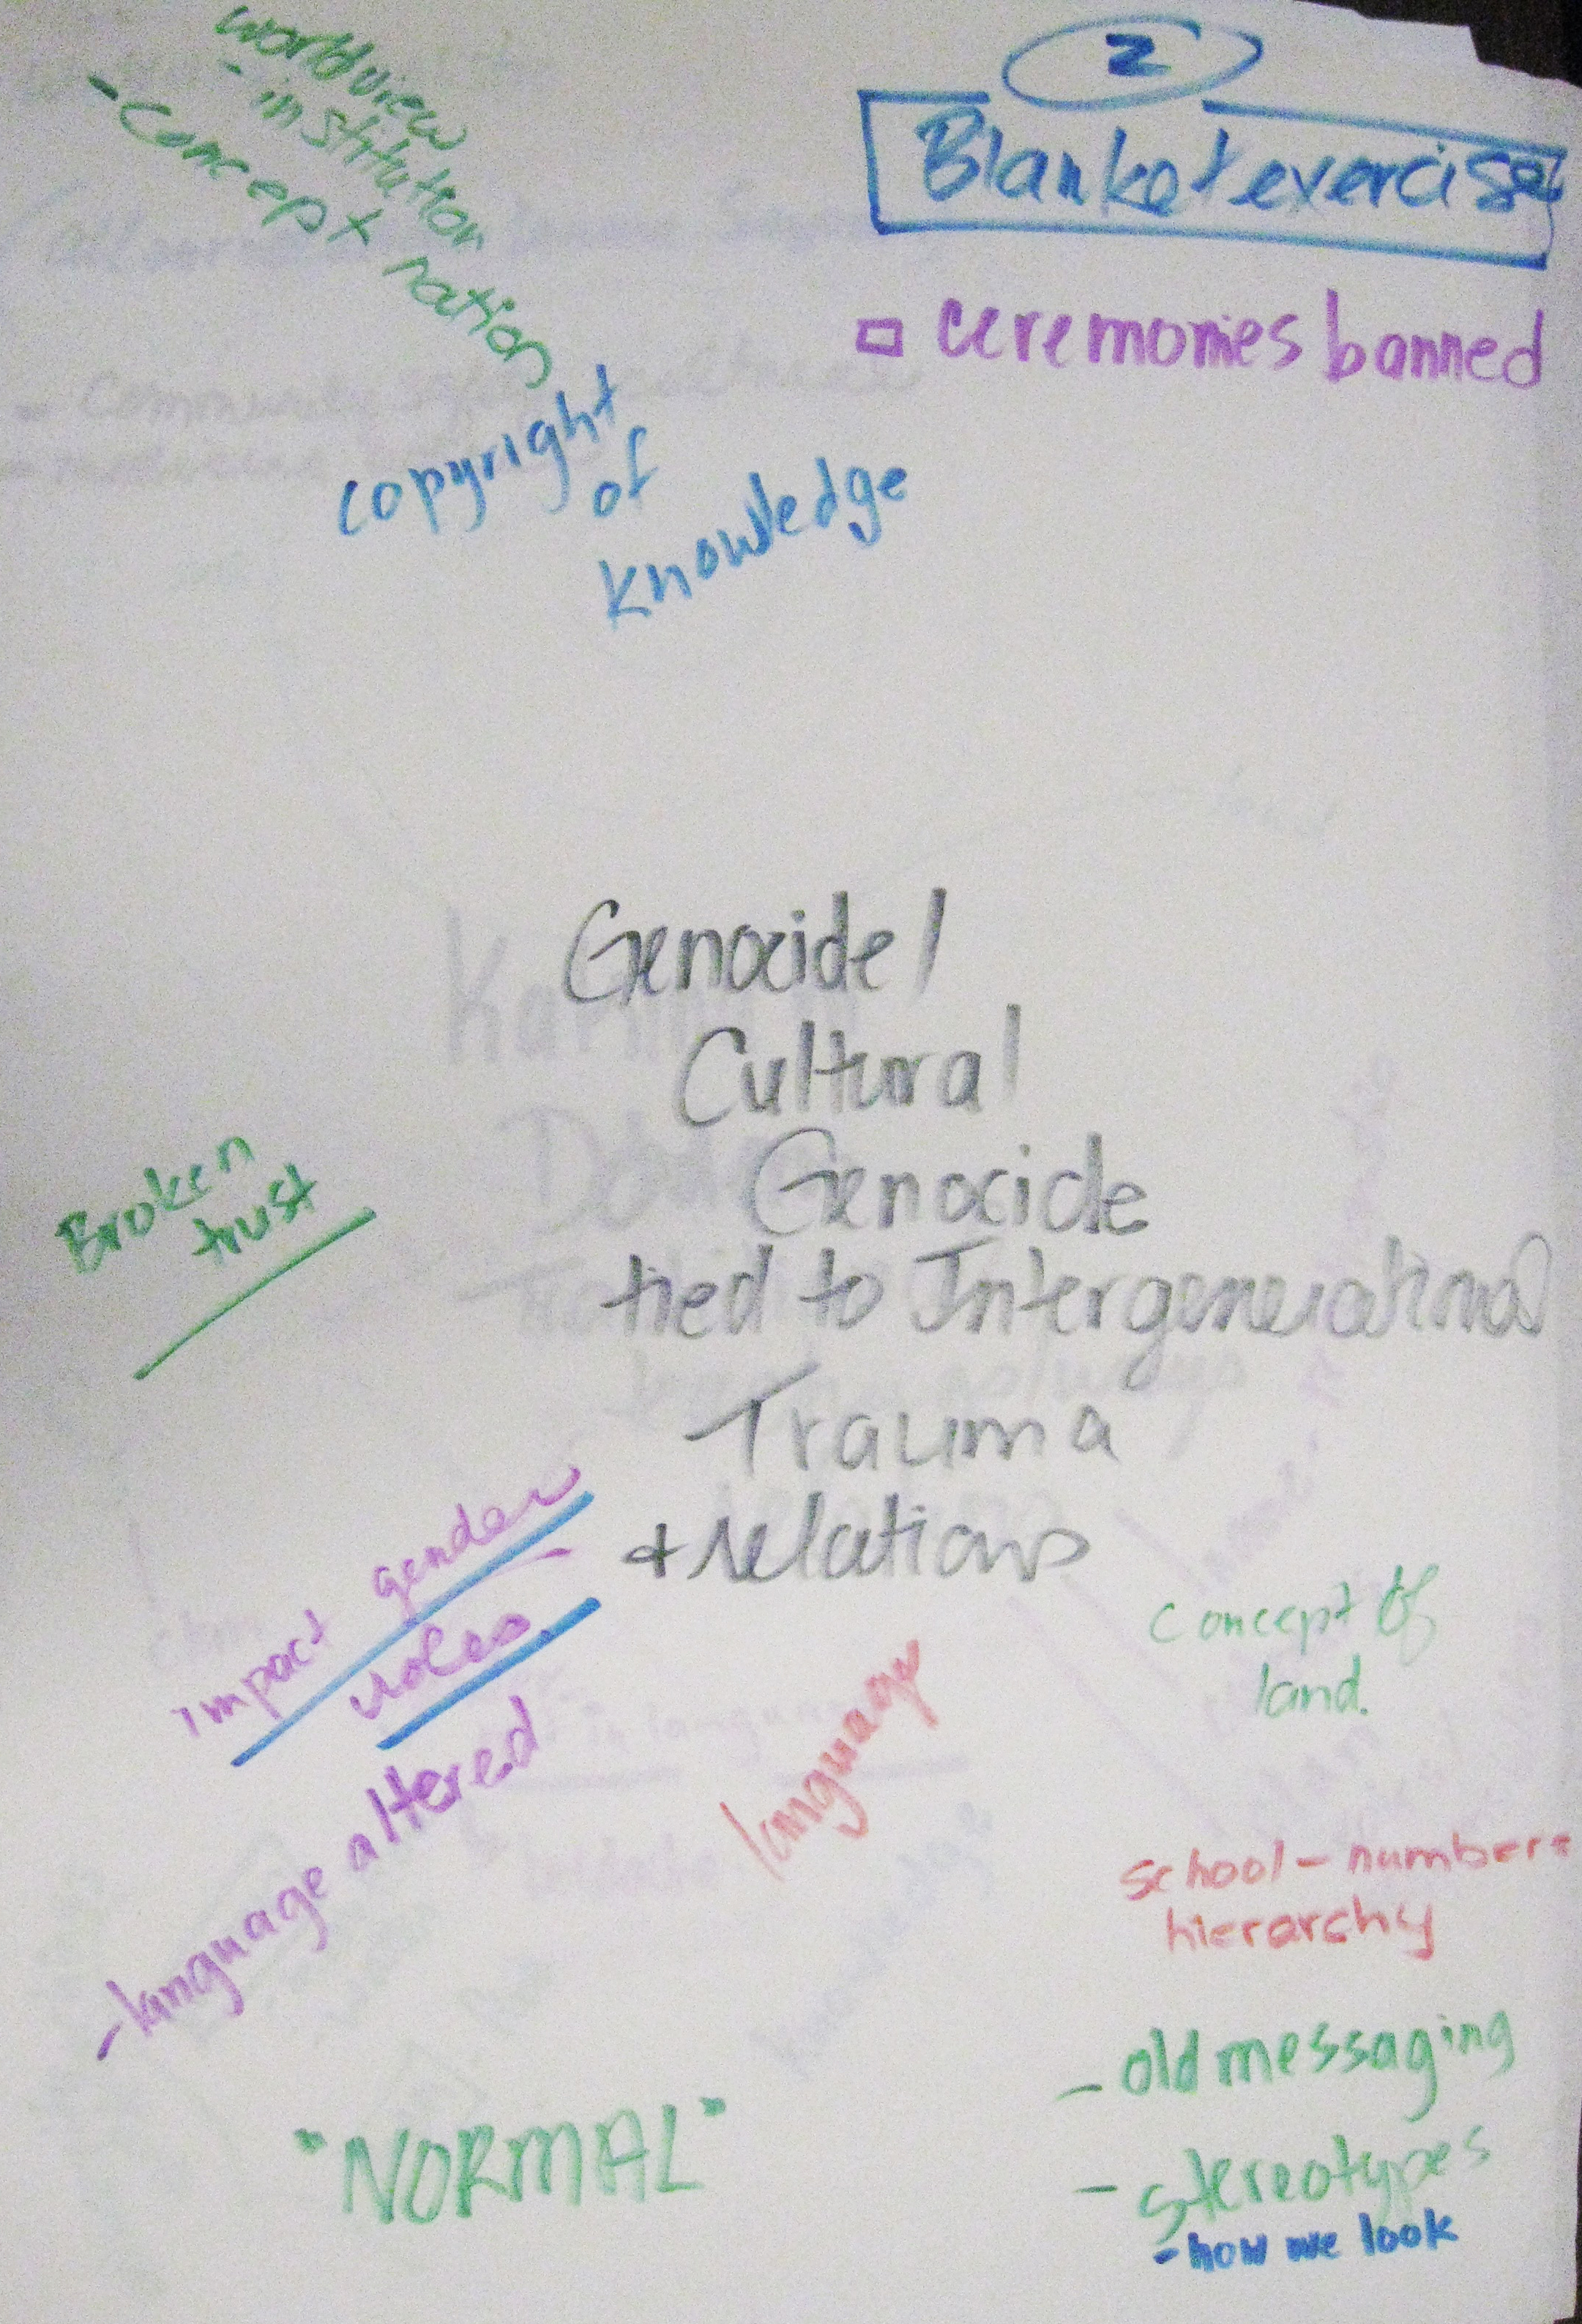 2
Blanket exercise
▫ ceremonies banned
worldview
- institution
- concept nation
copyright
of
knowledge
Genocide /
Cultural
Genocide
tied to Intergenerational
Trauma
+ relations
Broken
trust
impact gender
roles
- language altered
language
concept of
land.
school - numbers
hierarchy
- old messaging
- stereotypes
- how we look
"NORMAL"